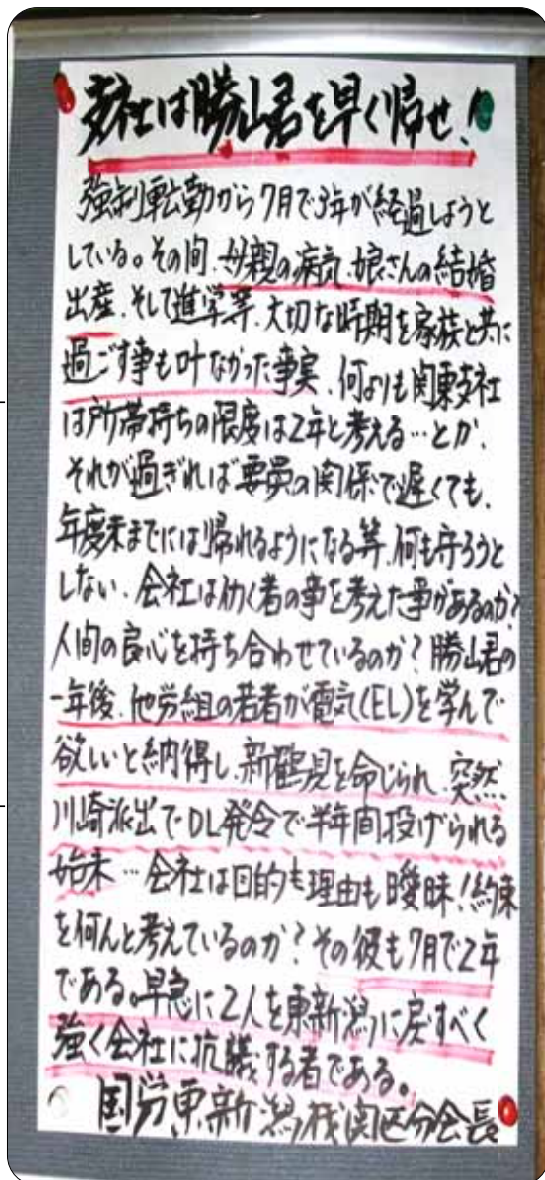 支社は勝山君を早く帰せ!
強制転勤から7月で3年が経過しようと
している。その間、母親の病気、娘さんの結婚
出産、そして進学等、大切な時期を家族と共に
過ごす事も叶なかった事実、何よりも関東支社
は所帯持ちの限度は2年と考える…とか、
それが過ぎれば要員の関係で遅くても、
年度末までには帰れるようになる等、何も守ろうと
しない、会社は働く者の事を考えた事があるのか?
人間の良心を持ち合わせているのか?勝山君の
一年後、他労組の若者が電気(EL)を学んで
欲しいと納得し、新鶴見を命じられ、突然
川崎派出でDL発令で半年間投げられる
始末…会社は目的も理由も曖昧!約束
を何んと考えているのか?その彼も7月で2年
である。早急に2人を東新潟に戻すべく
強く会社に抗議する者である。
国労東新潟機関区分会長